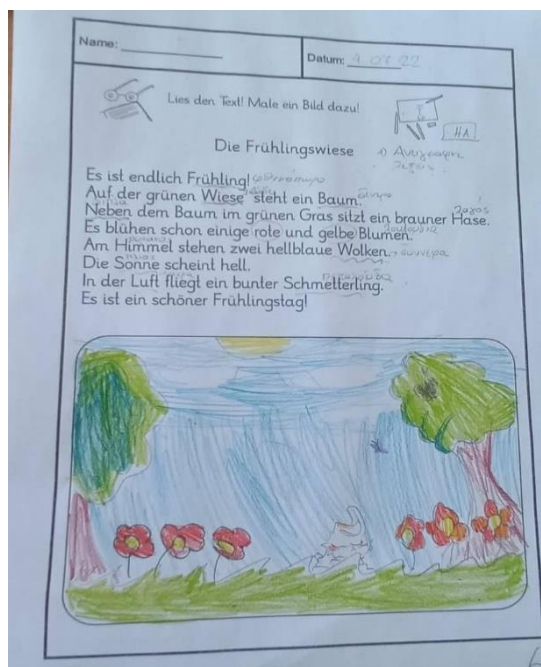 Name:
Datum:
Lies den Text! Male ein Bild dazu!
HA
Die Frühlingswiese
1)
Es ist endlich Frühling! φθινόπωρο
Auf der grünen Wiese steht ein Baum.
Neben dem Baum im grünen Gras sitzt ein brauner Hase.
Es blühen schon einige rote und gelbe Blumen.
Am Himmel stehen zwei hellblaue Wolken.
Die Sonne scheint hell.
In der Luft fliegt ein bunter Schmetterling.
Es ist ein schöner Frühlingstag!